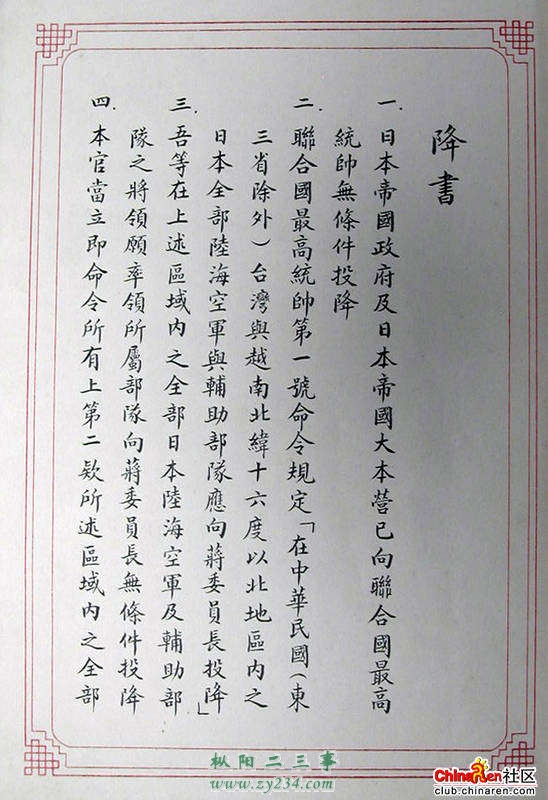 降書
一.日本帝國政府及日本帝國大本營已向聯合國最高
統帥無條件投降
二.聯合國最高統帥第一號命令規定「在中華民國(東
三省除外)台灣與越南北緯十六度以北地區內之
日本全部陸海空軍與輔助部隊應向蔣委員長投降」
三.吾等在上述區域內之全部日本陸海空軍及輔助部
隊之將領願率領所屬部隊向蔣委員長無條件投降
四.本官當立即命令所有上第二欵所述區域內之全部
枞阳二三事
www.zy234.com
ChinaRen社区
club.chinaren.com